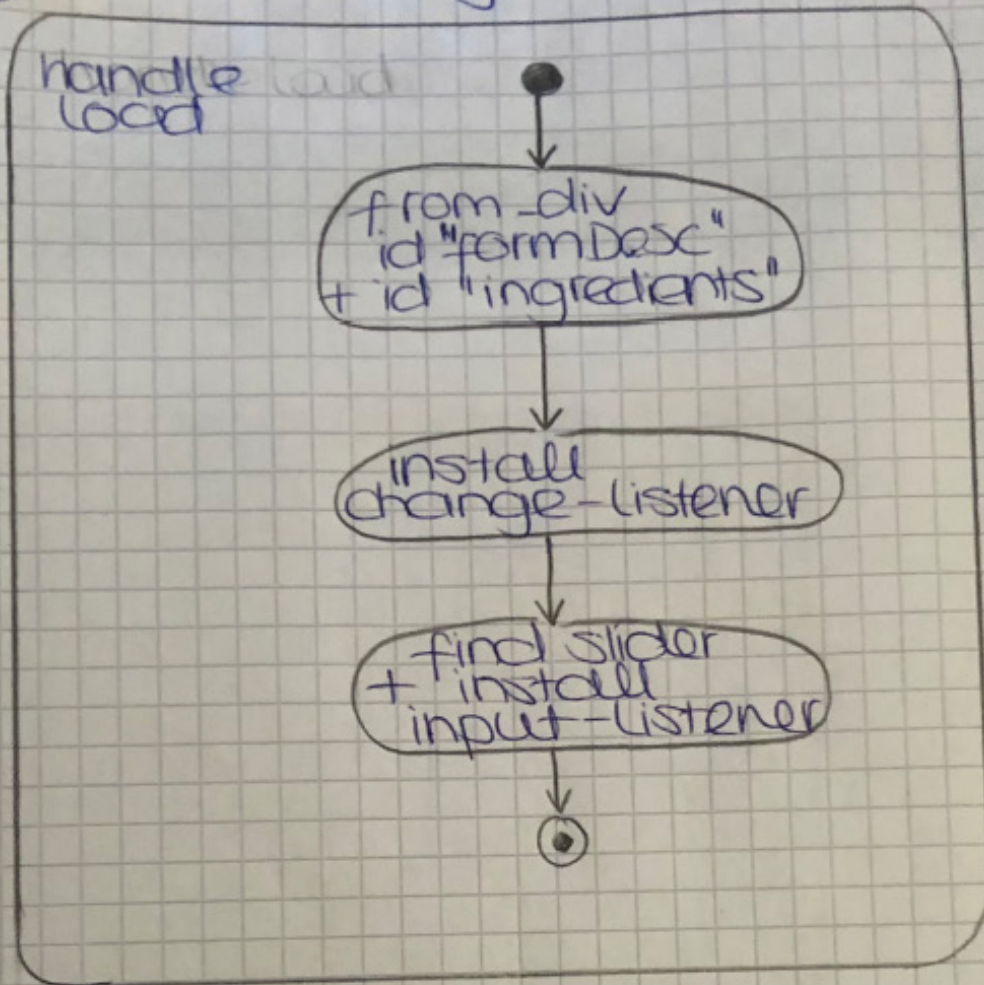 handle load
load
from_div
id "formDesc"
+ id "ingredients"
install
change-listener
find slider
+ install
input-listener